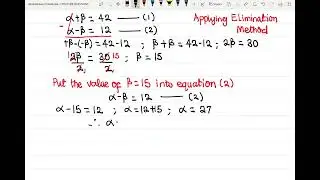 α+β = 42 —— (1)
α-β = 12 —— (2)
Applying Elimination Method
+β-(-β) = 42-12 ; β+β = 42-12 ; 2β = 30
2β/2 = 30/2 15 ; β = 15
Put the value of β=15 into equation (2)
α-β = 12 —— (2)
α-15 = 12 ; α = 12+15 ; α = 27
∴ α